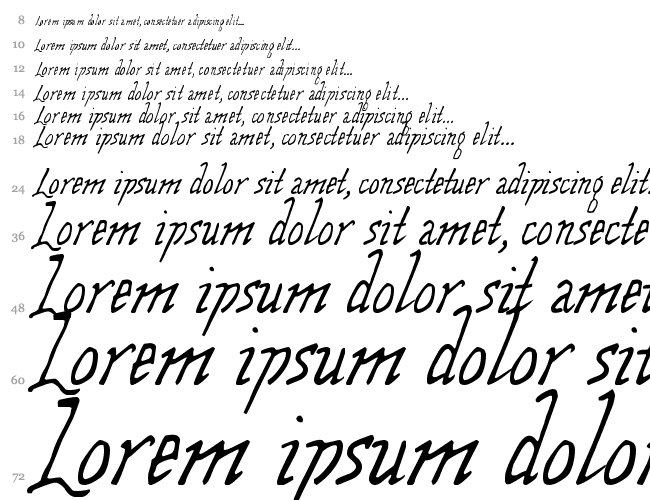 8 Lorem ipsum dolor sit amet, consectetuer adipiscing elit...
10 Lorem ipsum dolor sit amet, consectetuer adipiscing elit...
12 Lorem ipsum dolor sit amet, consectetuer adipiscing elit...
14 Lorem ipsum dolor sit amet, consectetuer adipiscing elit...
16 Lorem ipsum dolor sit amet, consectetuer adipiscing elit...
18 Lorem ipsum dolor sit amet, consectetuer adipiscing elit...
24 Lorem ipsum dolor sit amet, consectetuer adipiscing elit.
36 Lorem ipsum dolor sit amet, consecte
48 Lorem ipsum dolor sit amet
60 Lorem ipsum dolor sit
72 Lorem ipsum dolo